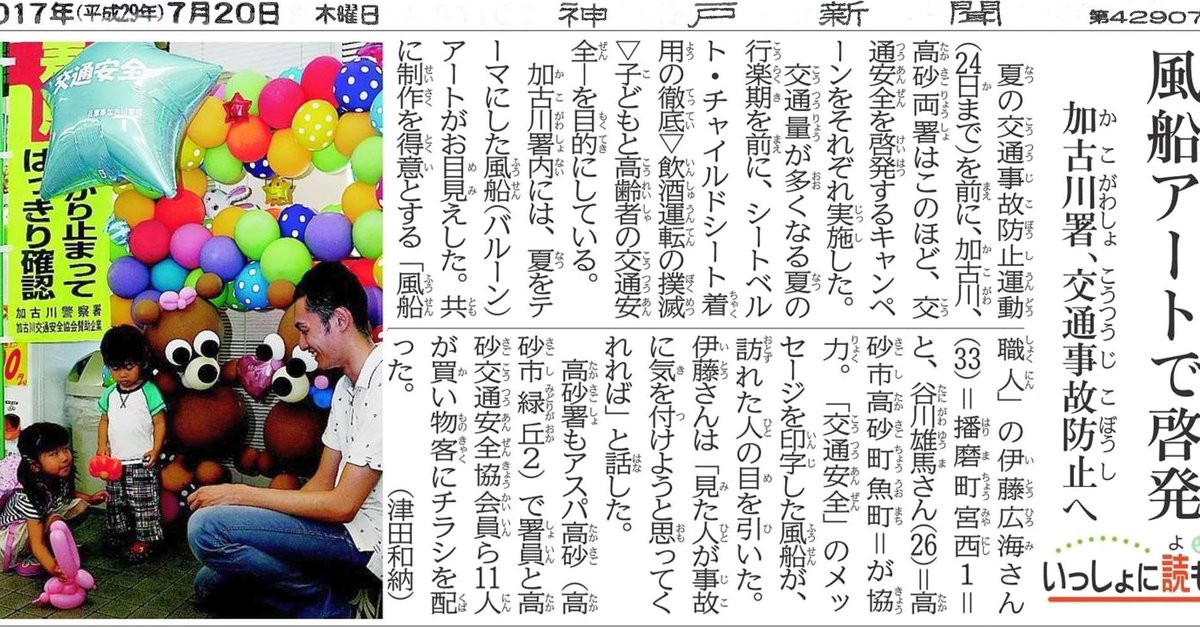 017年(平成29年)7月20日 木曜日 神戸新聞 第42907
風船アートで啓発
加古川署、交通事故防止へ
いっしょに読も
夏の交通事故防止運動
(24日まで)を前に、加古川、
高砂両署はこのほど、交
通安全を啓発するキャンペ
ーンをそれぞれ実施した。
交通量が多くなる夏の
行楽期を前に、シートベル
ト・チャイルドシート着
用の徹底▽飲酒運転の撲滅
▽子どもと高齢者の交通安
全―を目的にしている。
加古川署内には、夏をテ
ーマにした風船(バルーン)
アートがお目見えした。共
に制作を得意とする「風船
職人」の伊藤広海さん
(33)＝播磨町宮西1＝
と、谷川雄馬さん(26)＝高
砂市高砂町魚町＝が協
力。「交通安全」のメッ
セージを印字した風船が、
訪れた人の目を引いた。
伊藤さんは「見た人が事故
に気を付けようと思ってく
れれば」と話した。
高砂署もアスパ高砂(高
砂市緑丘2)で署員と高
砂交通安全協会員ら11人
が買い物客にチラシを配
った。
(津田和納)
交通安全
がり止まって
はっきり確認
加古川警察署
加古川交通安全協会賛助企業